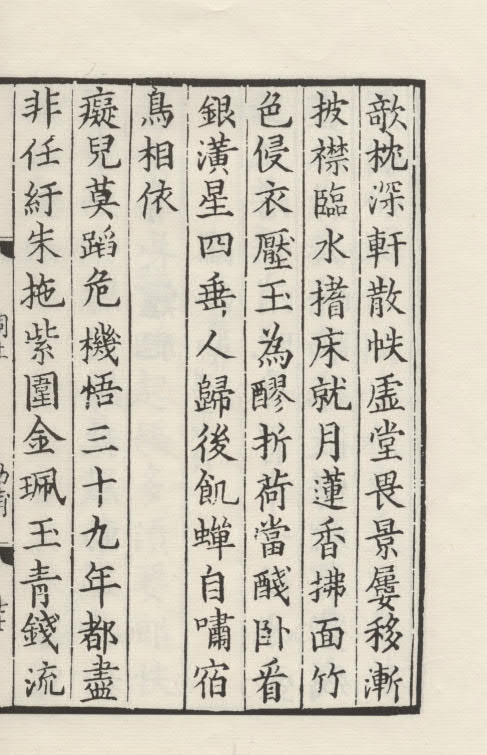 欹枕深軒散帙虛堂畏景屢移漸
披襟臨水搘床就月蓮香拂面竹
色侵衣壓玉為醪折荷當醆卧看
銀潢星四垂人歸後飢蟬自嘯宿
鳥相依
癡兒莫蹈危機悟三十九年都盡
非任紆朱拖紫圍金珮玉青錢流